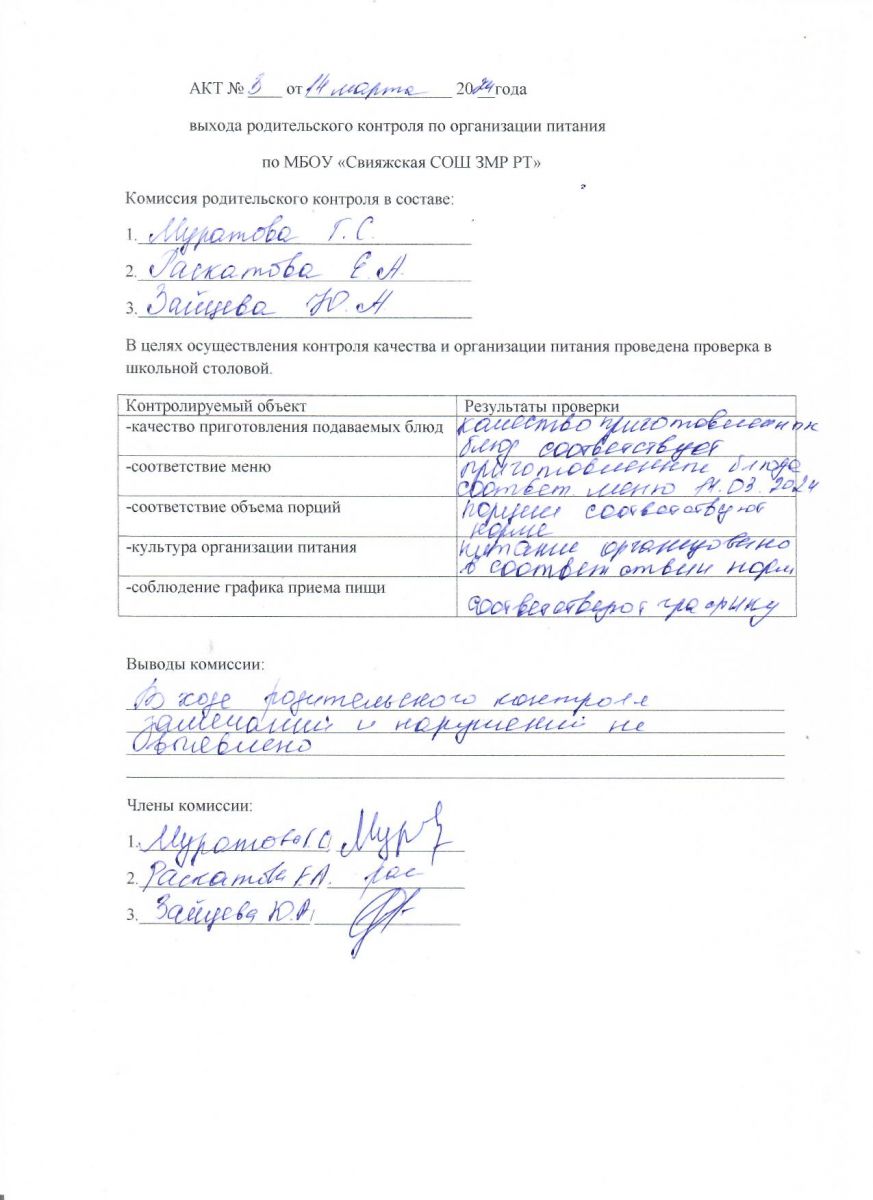 АКТ № 3 от 14 марта 2024 года
выхода родительского контроля по организации питания
по МБОУ «Свияжская СОШ ЗМР РТ»
Комиссия родительского контроля в составе:
1. Муратова Г. С.
2. Раскатова Е. А.
3. Зайцева Ю. А.
В целях осуществления контроля качества и организации питания проведена проверка в
школьной столовой.
Контролируемый объект Результаты проверки
-качество приготовления подаваемых блюд качество
блюд соответствует
-соответствие меню приготовленные блюда
соответ. меню 14.03.2024
-соответствие объема порций порции соответствуют
норме
-культура организации питания питание организовано
в соответствии норм
-соблюдение графика приема пищи
графику
Выводы комиссии:
В ходе родительского контроля
замечаний и нарушений не
выявлено
Члены комиссии:
1. Муратова Г.С. Мур
2. Раскатова Е.А. рас
3. Зайцева Ю.А.